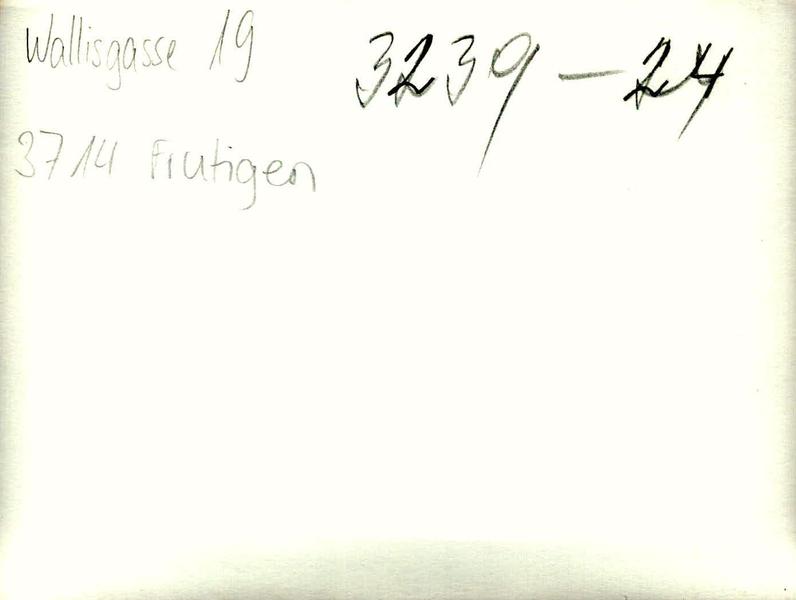 Wallisgasse 19
3239 - 24
3714 Frutigen